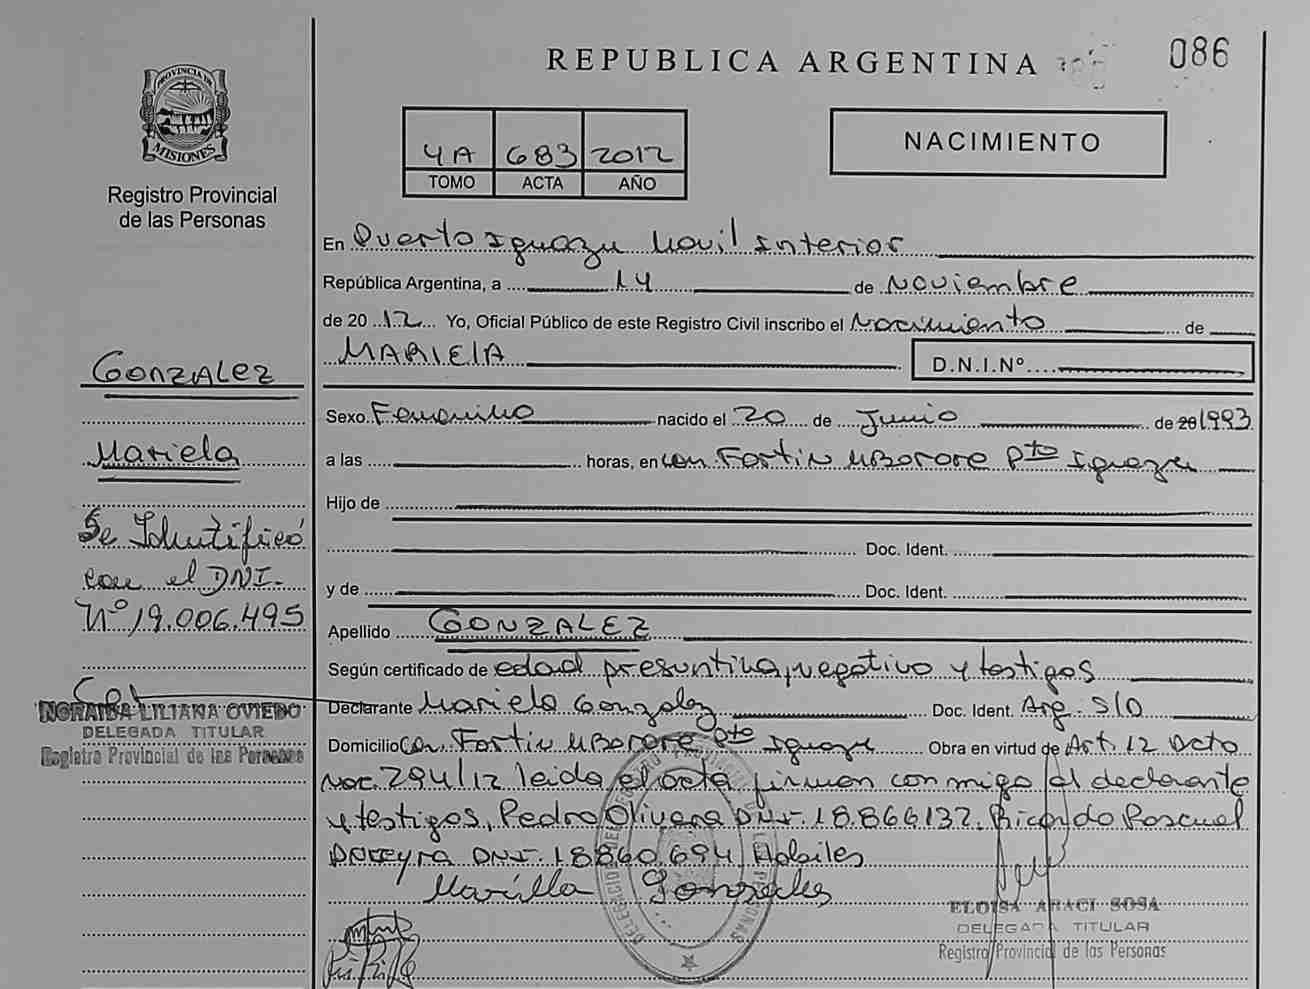 REPUBLICA ARGENTINA
086
PROVINCIA DE
MISIONES
Registro Provincial
de las Personas
4A 683 2012
TOMO ACTA AÑO
NACIMIENTO
En Puerto Iguazu Movil Interior
República Argentina, a 14 de Noviembre
de 2012 Yo, Oficial Público de este Registro Civil inscribo el Nacimiento de
MARIELA D.N.I.Nº
Sexo Femenino nacido el 20 de Junio de 20 1993
a las horas, en com Fortin MBororé Pto Iguazu
Hijo de
Doc. Ident.
y de Doc. Ident.
Apellido GONZALEZ
Según certificado de edad presuntiva, negativo y testigos
Declarante Mariela Gonzalez Doc. Ident. Arg. S/D
Domicilio Com Fortin MBororé Pto Iguazu Obra en virtud de Art. 12 Dcto
Nac. 294/12 leida el acta firman conmigo el declarante
y testigos, Pedro Olivera DNI. 18.866137. Ricardo Pascual
DNI. 18.860.694 Habiles
GONZALEZ
Mariela
Se Identificó
con el DNI.
Nº 19.006.495
NORAIDA LILIANA OVIEDO
DELEGADA TITULAR
Registro Provincial de las Personas
ELOISA ARACI SOSA
DELEGADA TITULAR
Registro Provincial de las Personas